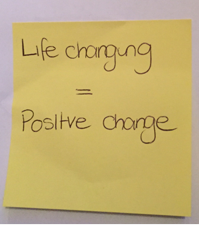 Life changing
=
Positve change